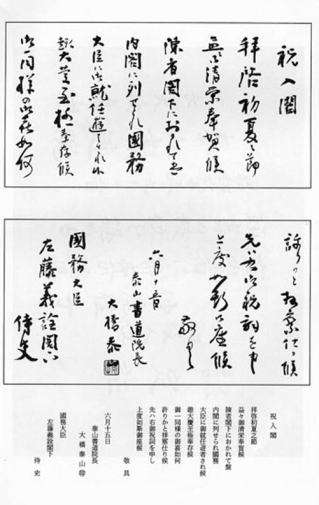 祝入閣
拝啓初夏之節
益々御清栄奉賀候
陳者閣下におかれて盤
内閣に列せられ國務
大臣に御就任遊者され候
趣大慶至極奉存候
御一同様の御喜如何
許りかと拝察仕り候
先ハ右御祝詞を申
上度如斯御座候
敬具
六月十五日
泰山書道院長
大橋泰
國務大臣
左藤義詮閣下
侍史
祝入閣
拝啓初夏之節
益々御清栄奉賀候
陳者閣下におかれて盤
内閣に列せられ國務
大臣に御就任遊者され候
趣大慶至極奉存候
御一同様の御喜如何
許りかと拝察仕り候
先ハ右御祝詞を申し
上度如斯御座候
敬具
六月十五日
泰山書道院長
大橋泰山㊞
國務大臣
左藤義詮閣下
侍史